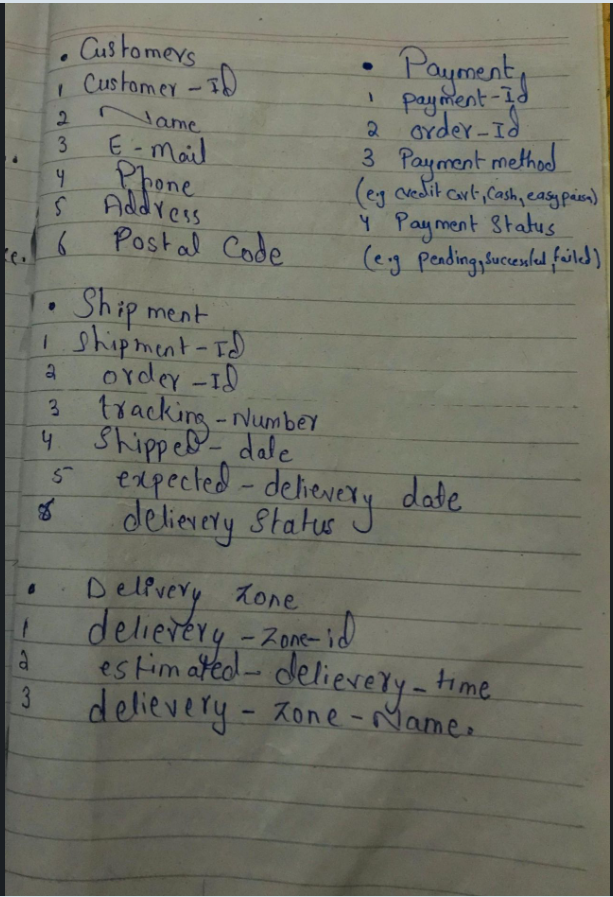 • Customers
1 Customer - Id
2 Name
3 E - Mail
4 Phone
5 Address
6 Postal Code
• Payment
1 payment - Id
2 order - Id
3 Payment method
(e.g credit cart, Cash, easypaisa)
4 Payment Status
(e.g pending, successful, failed)
• Shipment
1 Shipment - Id
2 order - Id
3 tracking - Number
4 Shipped - date
5 expected - delievery date
delievery Status
• Delivery Zone
1 delievery - zone - id
2 estimated - delievery - time
3 delievery - zone - Name.